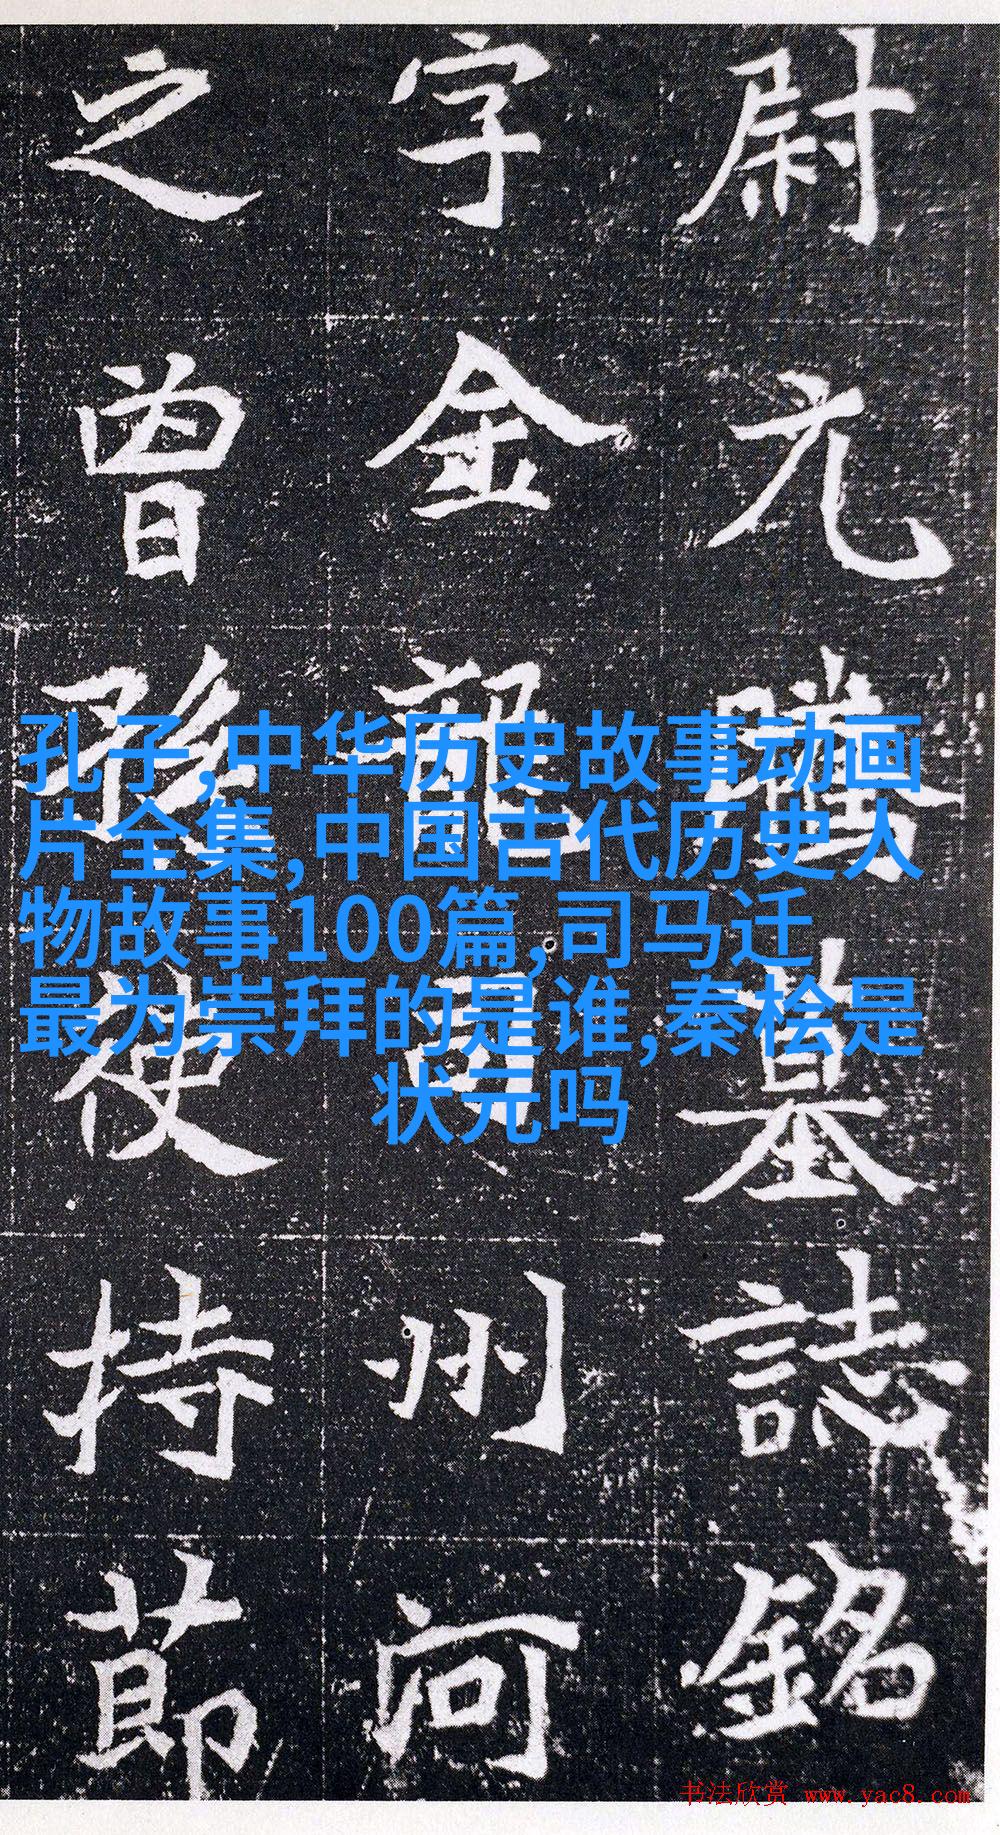 尉元騰墓誌銘
字金龍司州河
之曾孫使持節
孔子,中华历史故事动画
片全集,中国古代历史人
物故事100篇,司马迁
最为崇拜的是谁,秦桧是
状元吗
书法欣赏 www.yac8.com